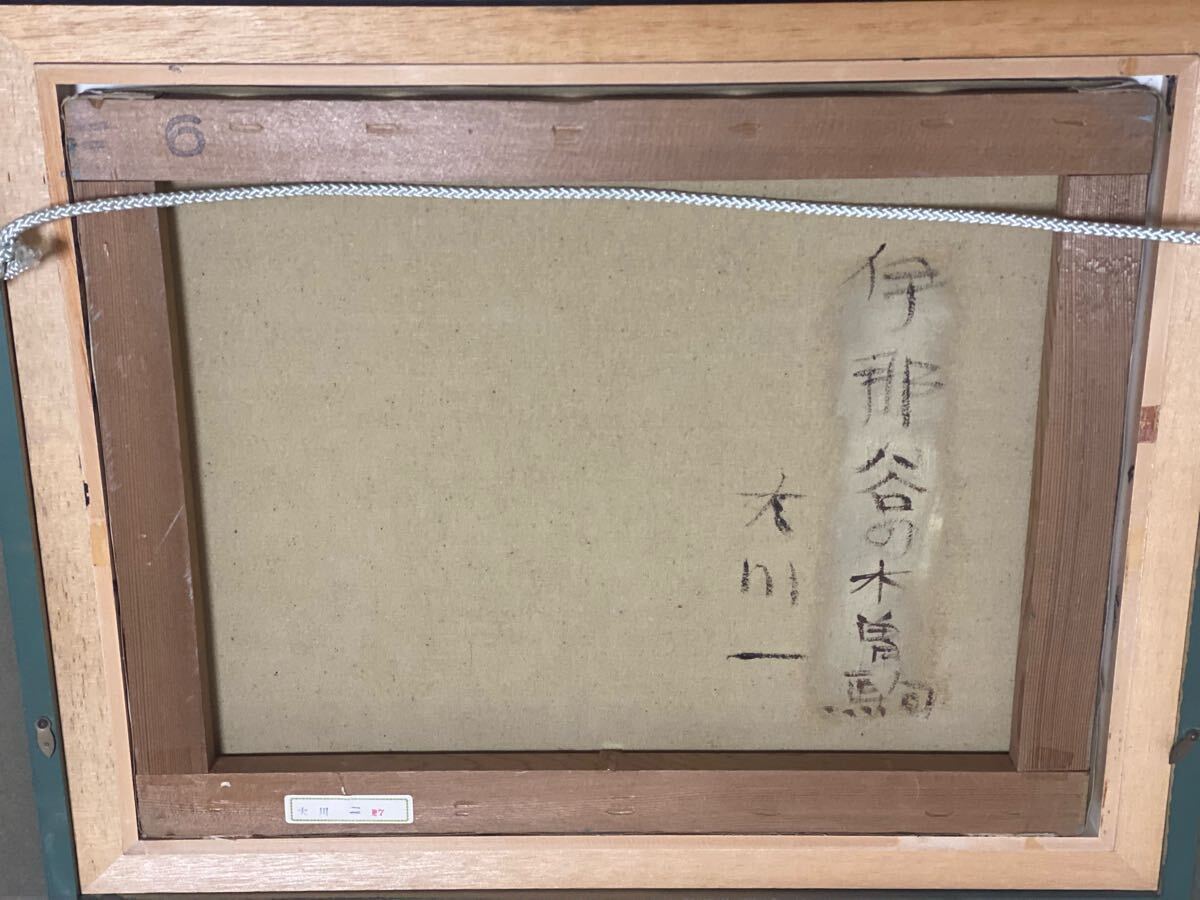 6
伊那谷の木曽駒
大川一
大川 二 P7